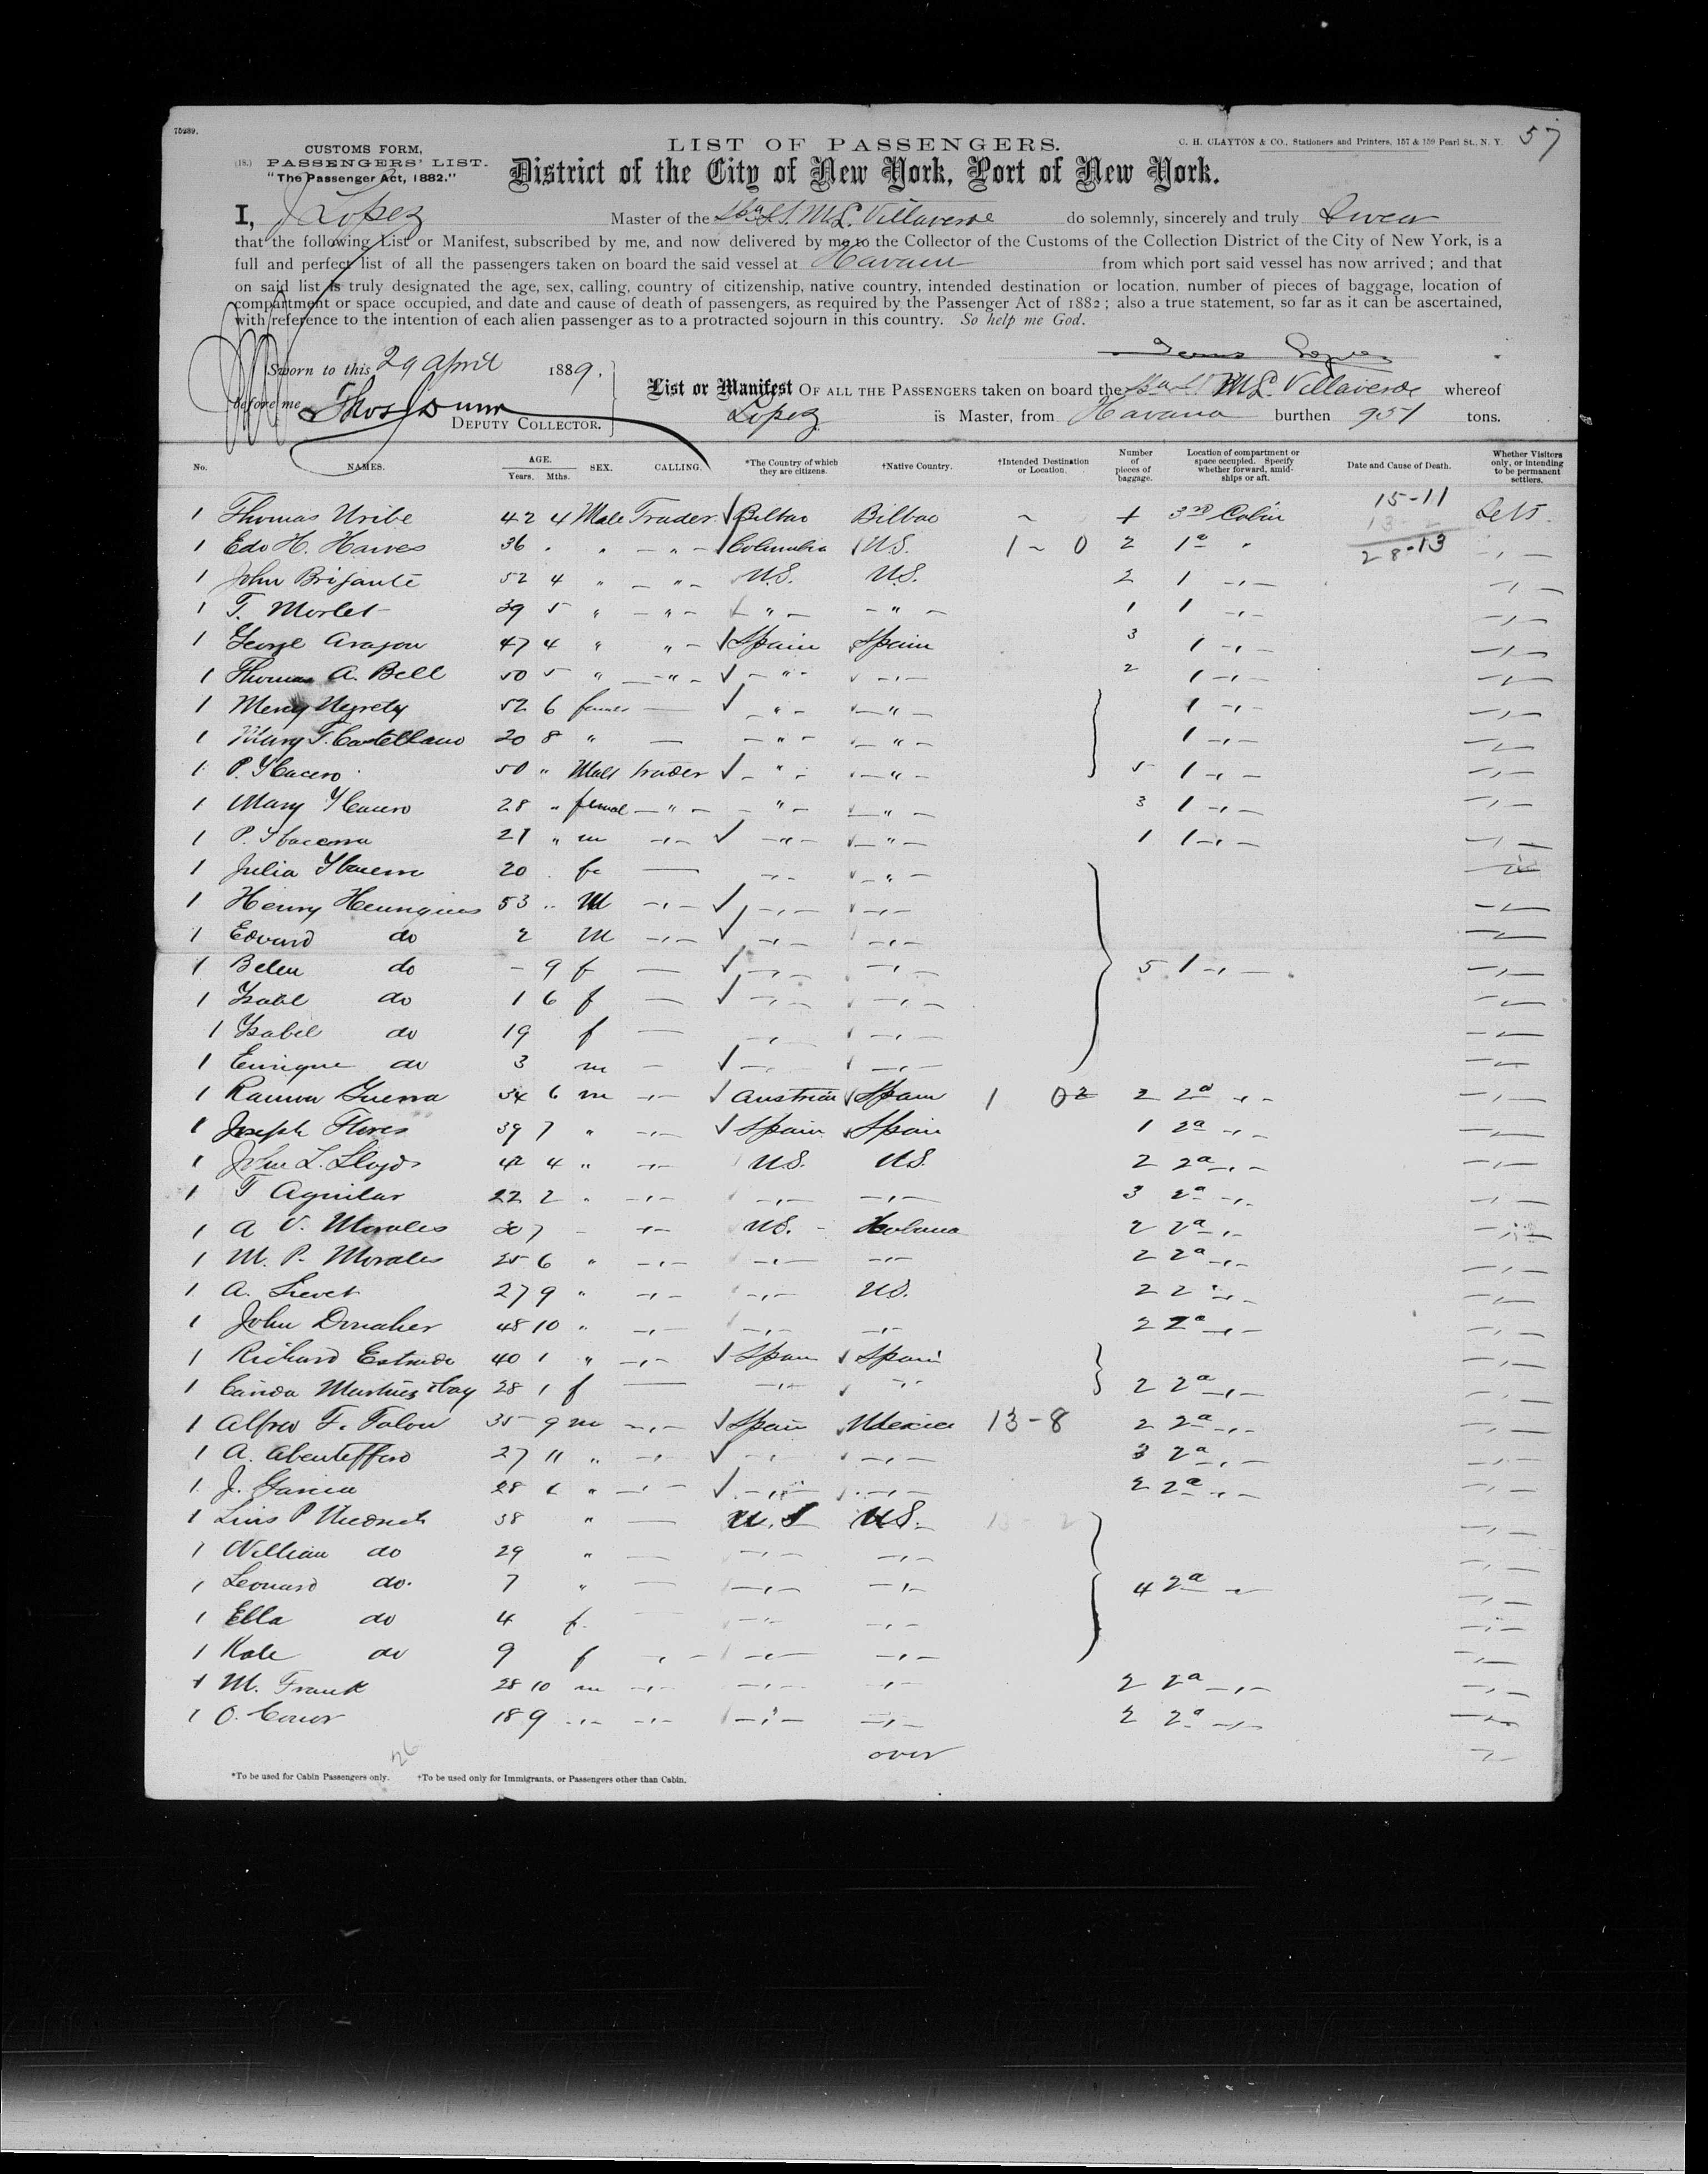 75989.
57
CUSTOMS FORM,
LIST OF PASSENGERS.
C. H. CLAYTON & CO., Stationers and Printers, 157 & 159 Pearl St., N. Y.
(18.) PASSENGERS' LIST.
"The Passenger Act, 1882."
District of the City of New York, Port of New York.
I, J Lopez Master of the S.S. M.L. Villaverde do solemnly, sincerely and truly Swear
that the following List or Manifest, subscribed by me, and now delivered by me to the Collector of the Customs of the Collection District of the City of New York, is a
full and perfect list of all the passengers taken on board the said vessel at Havana from which port said vessel has now arrived; and that
on said list is truly designated the age, sex, calling, country of citizenship, native country, intended destination or location, number of pieces of baggage, location of
compartment or space occupied, and date and cause of death of passengers, as required by the Passenger Act of 1882; also a true statement, so far as it can be ascertained,
with reference to the intention of each alien passenger as to a protracted sojourn in this country. So help me God.
Lopez
Sworn to this 29 April 1889.
before me Thos Dunn
DEPUTY COLLECTOR.
List or Manifest OF ALL THE PASSENGERS taken on board the M.L. Villaverde whereof
Lopez is Master, from Havana burthen 951 tons.
No. NAMES. AGE. Years. Mths. SEX. CALLING. *The Country of which they are citizens. †Native Country. †Intended Destination or Location. Number of pieces of baggage. Location of compartment or space occupied. Specify whether forward, amidships or aft. Date and Cause of Death. Whether Visitors only, or intending to be permanent settlers.
15-11
1 Thomas Uribe 42 4 Male Trader Bilbao Bilbao ~ 3rd Cabin
28-13
1 Edo H. Hawes 36 " " Columbia U.S. 1 ~ 0 2 1a "
1 John Brigante 52 4 " " U.S. U.S. 2 1 "
1 T. Morlet 39 5 " " " " 1 1 "
1 George Aragon 47 4 " " Spain Spain 3 1 "
1 Thomas A. Bell 50 5 " " " " 2 1 "
1 52 6 — " " 1 "
1 Mary T. Castellano 20 8 " — " " 1 "
1 P. 50 " Male Trader " " 5 1 "
1 Mary 28 " female " " " 3 1 "
1 P. " m " " " 1 1 "
1 Julia 20 fe — " "
1 Henry 53 " M " " "
1 Edward do 2 M " " "
1 Belen do - 9 f — " " 5 1 "
1 Isabel do 1 6 f — " "
1 Isabel do 19 f — " "
1 Enrique do 3 m - " "
1 Ramon Guerra 34 6 m " Austria Spain 1 0 2 2a "
1 Joseph Flores 39 7 " " Spain Spain 1 2a "
1 John L. Lloyds 42 4 " " U.S. U.S. 2 2a "
1 T Aguilar 22 2 " " " " 3 2a "
1 A V. Morales 30 7 - " U.S. Habana 2 2a "
1 M. P. Morales 25 6 " " " " 2 2a "
1 A. 27 9 " " " U.S. 2 2 "
1 John Donaher 48 10 " " " " 2 2a "
1 Richard Estrada 40 1 " " Spain Spain
1 28 1 f — " " 2 2a "
1 Alfred F. Talon 35 9 m " Spain Mexico 13-8 2 2a "
1 A. 27 11 " " " " 3 2a "
1 J. Garcia 28 " " " " 2 2a "
1 Luis P 38 " — U.S U.S.
1 William do 29 " — " "
1 Leonard do. 7 " — " " 4 2a "
1 Ella do 4 f. — " "
1 Kate do 9 f " " "
1 M. Frank 28 10 m " " " 2 2a "
1 O. Conor 18 9 " " " " 2 2a "
over
26
*To be used for Cabin Passengers only. †To be used only for Immigrants, or Passengers other than Cabin.